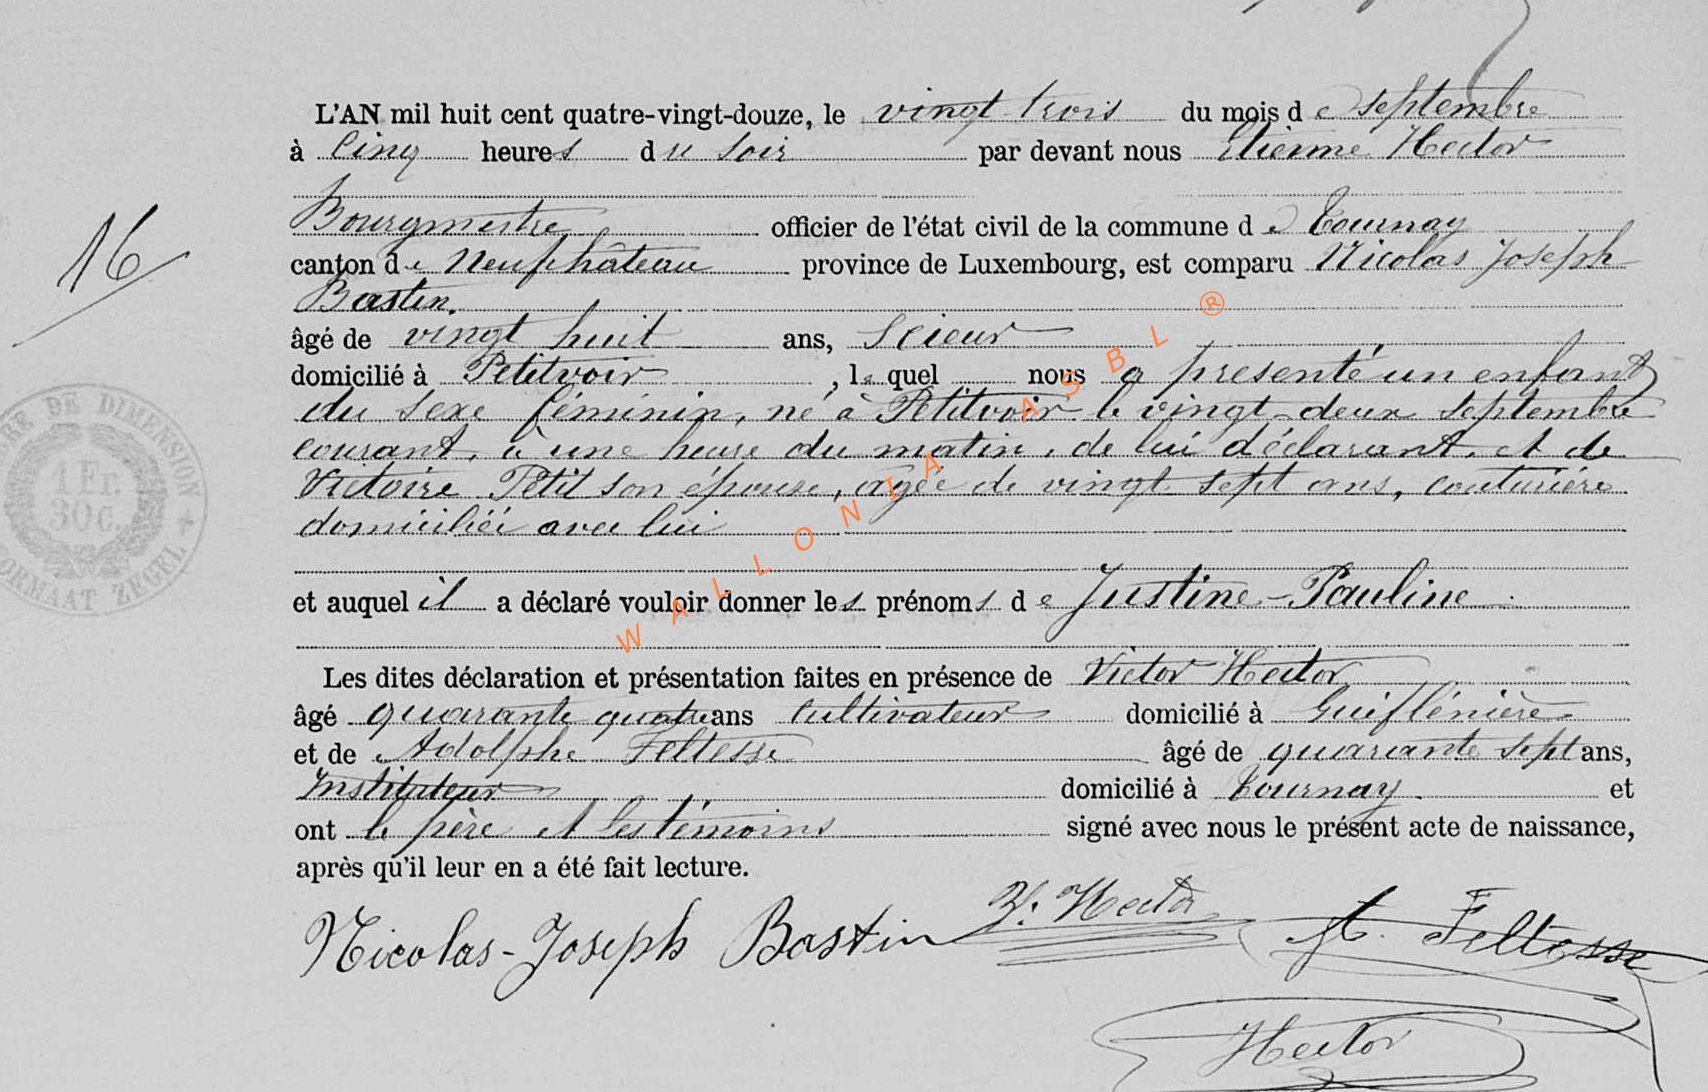 L'AN mil huit cent quatre-vingt-douze, le vingt trois du mois de septembre
à cinq heures du soir par devant nous Etienne Hector
Bourgmestre officier de l'état civil de la commune de Tournay
canton de Neufchâteau province de Luxembourg, est comparu Nicolas Joseph
Bastin.
16
âgé de vingt huit ans, Scieur
domicilié à Petitvoir, lequel nous a présenté un enfant
du sexe féminin, né à Petitvoir le vingt-deux septembre
courant, à une heure du matin, de lui déclarant, et de
Victoire Petit son épouse, agée de vingt sept ans, couturière
domiciliée avec lui
et auquel il a déclaré vouloir donner les prénoms de Justine-Pauline
Les dites déclaration et présentation faites en présence de Victor Hector
âgé quarante quatre ans cultivateur domicilié à
et de Adolphe Feltesse âgé de quarante sept ans,
Instituteur domicilié à Tournay. et
ont le père et les témoins signé avec nous le présent acte de naissance,
après qu'il leur en a été fait lecture.
Nicolas-Joseph Bastin V. Hector A. Feltesse
Hector
DE DIMENSION
1 Fr.
30 C.
FORMAAT ZEGEL
WALLONIA ASBL ®